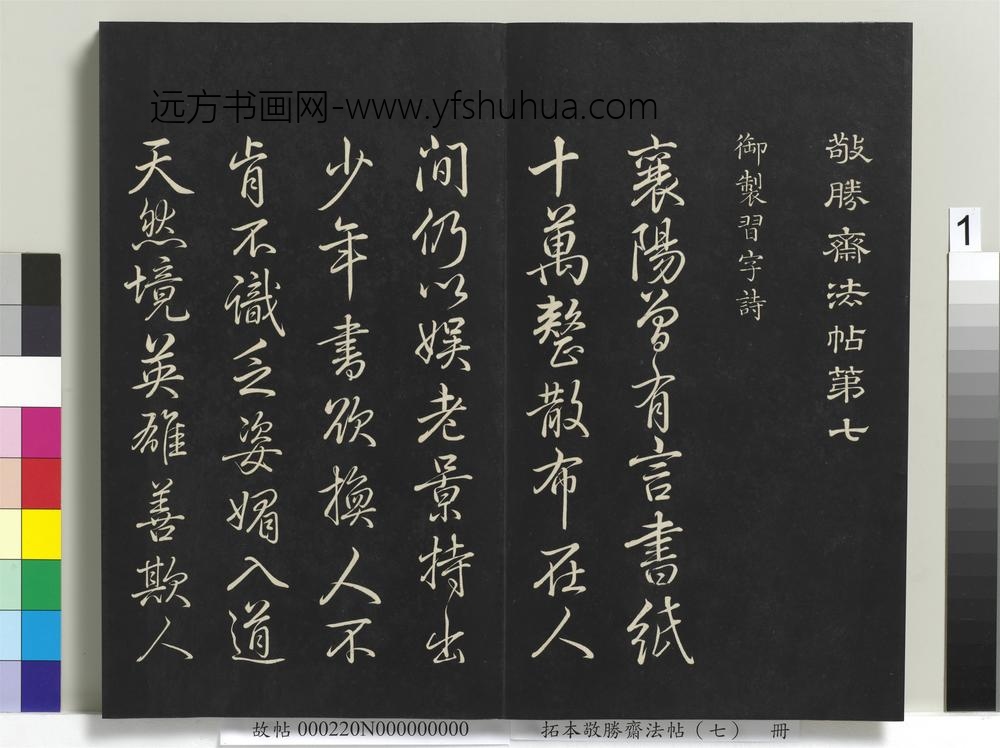 敬勝齋法帖第七
御製習字詩
襄陽曽有言書紙
十萬整散布在人
间仍以娱老景持出
少年書欲换人不
肯不識乏姿媚入道
天然境英雄善欺人
远方书画网-www.yfshuhua.com
1
故帖 000220N000000000
拓本敬勝齋法帖（七） 冊